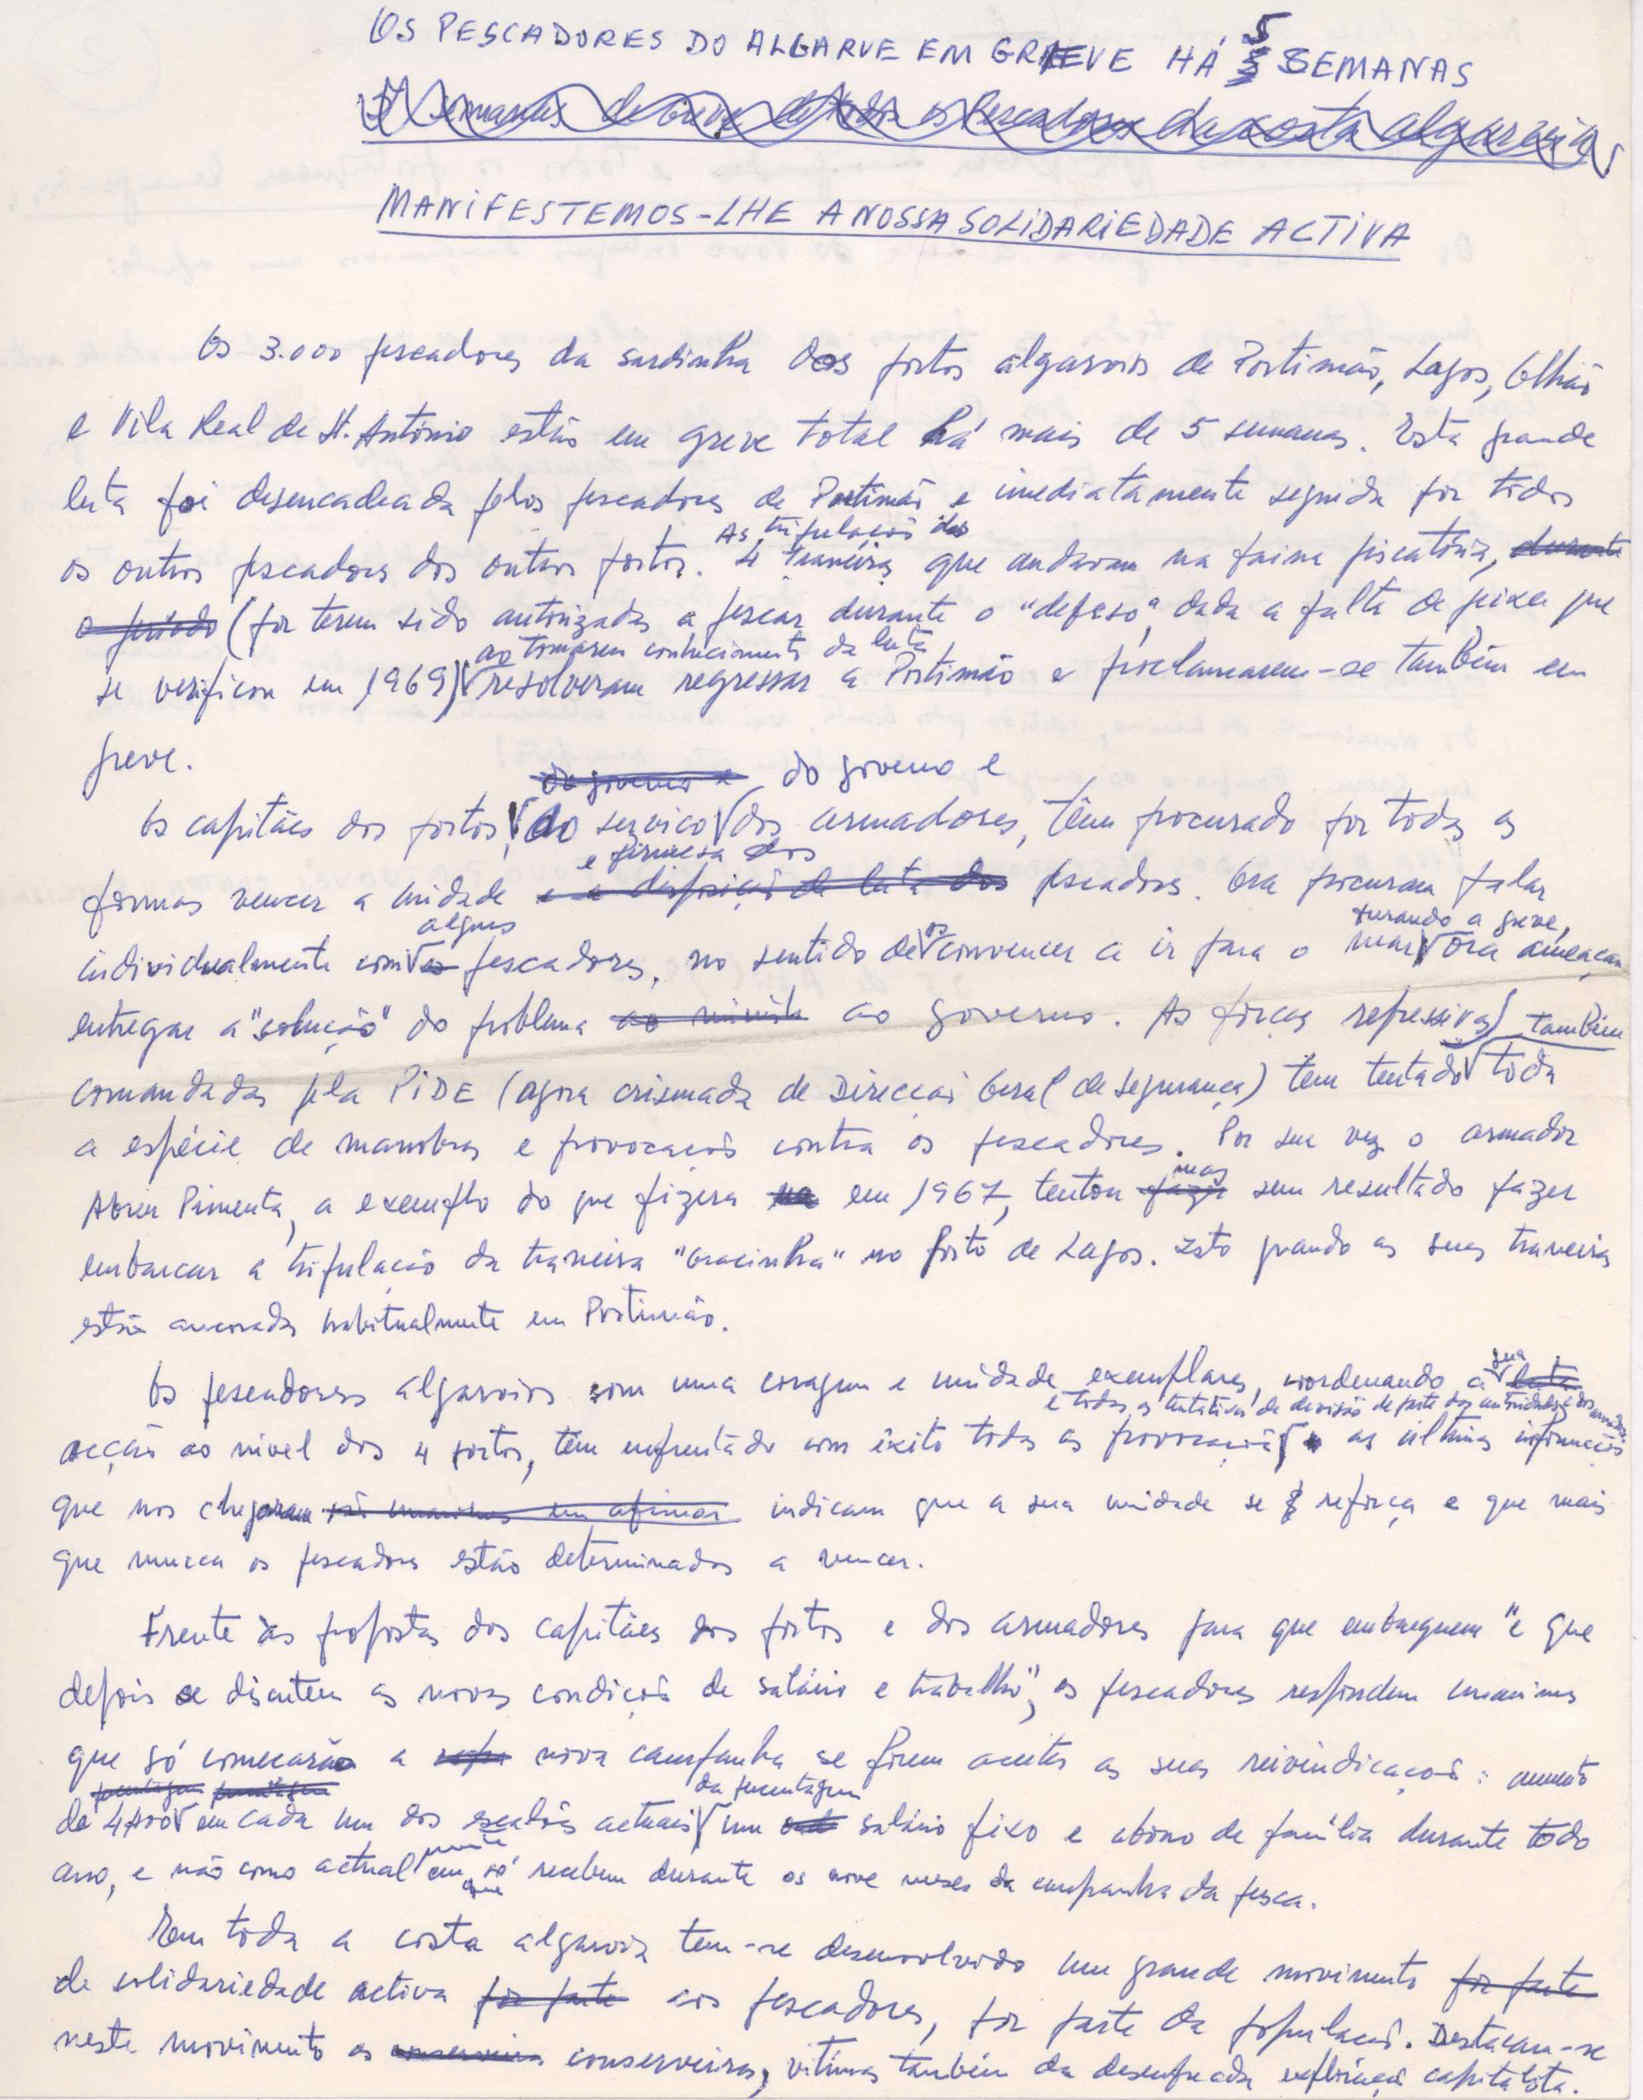 OS PESCADORES DO ALGARVE EM GREVE HÁ 5 SEMANAS
5 semanas de greve de todos os Pescadores da costa algarvia
MANIFESTEMOS-LHE A NOSSA SOLIDARIEDADE ACTIVA
Os 3.000 pescadores da sardinha dos portos algarvios de Portimão, Lagos, Olhão
e Vila Real de St. António estão em greve total há mais de 5 semanas. Esta grande
luta foi desencadeada pelos pescadores de Portimão e imediatamente seguida por todos
As tripulações das
os outros pescadores dos outros portos. 4 traineiras que andavam na faina piscatória, durante
o período (por terem sido autorizadas a pescar durante o "defeso", dada a falta de peixe que
ao tomarem conhecimento da luta
se verificou em 1969) resolveram regressar a Portimão e proclamarem-se também em
greve.
do governo e do governo e
Os capitães dos portos, ao serviço dos armadores, têm procurado por todas as
e firmeza dos
formas vencer a unidade e a disposição de luta dos pescadores. Ora procuram falar
alguns os furando a greve,
individualmente com os pescadores, no sentido de convencer a ir para o mar ora ameaçam
entregar a "solução" do problema ao minist. ao governo. As forças repressivas também
comandadas pela PIDE (agora crismada de Direcção Geral de Segurança) têm tentado toda
a espécie de manobras e provocações contra os pescadores. Por sua vez o armador
mas
Abreu Pimenta, a exemplo do que fizera na em 1967, tentou fazer sem resultado fazer
embarcar a tripulação da traineira "Gracinha" no porto de Lagos. Isto quando as suas traineiras
estão ancoradas habitualmente em Portimão.
sua
Os pescadores algarvios com uma coragem e unidade exemplares, coordenando a luta
e todas as tentativas de divisão de parte das autoridades e dos armadores
acção ao nível dos 4 portos, têm enfrentado com êxito todas as provocações as últimas informações
que nos chegaram são unanimes em afirmar indicam que a sua unidade se reforça e que mais
que nunca os pescadores estão determinados a vencer.
Frente às propostas dos capitães dos portos e dos armadores para que embarquem "e que
depois se discutem as novas condições de salário e trabalho", os pescadores respondem unanimes
que só começarão a nova campanha se forem aceites as suas reivindicações: aumento
percentagem percentagem da percentagem
de em cada um dos escalões actuais um salário fixo e abono de família durante todo
mente que
ano, e não como actual em só recebem durante os nove meses da campanha da pesca.
Em toda a costa algarvia tem-se desenvolvido um grande movimento por parte
de solidariedade activa por parte aos pescadores, por parte da população. Destacam-se
neste movimento os conserveiros conserveiros, vítimas também da desenfreada exploração capitalista.